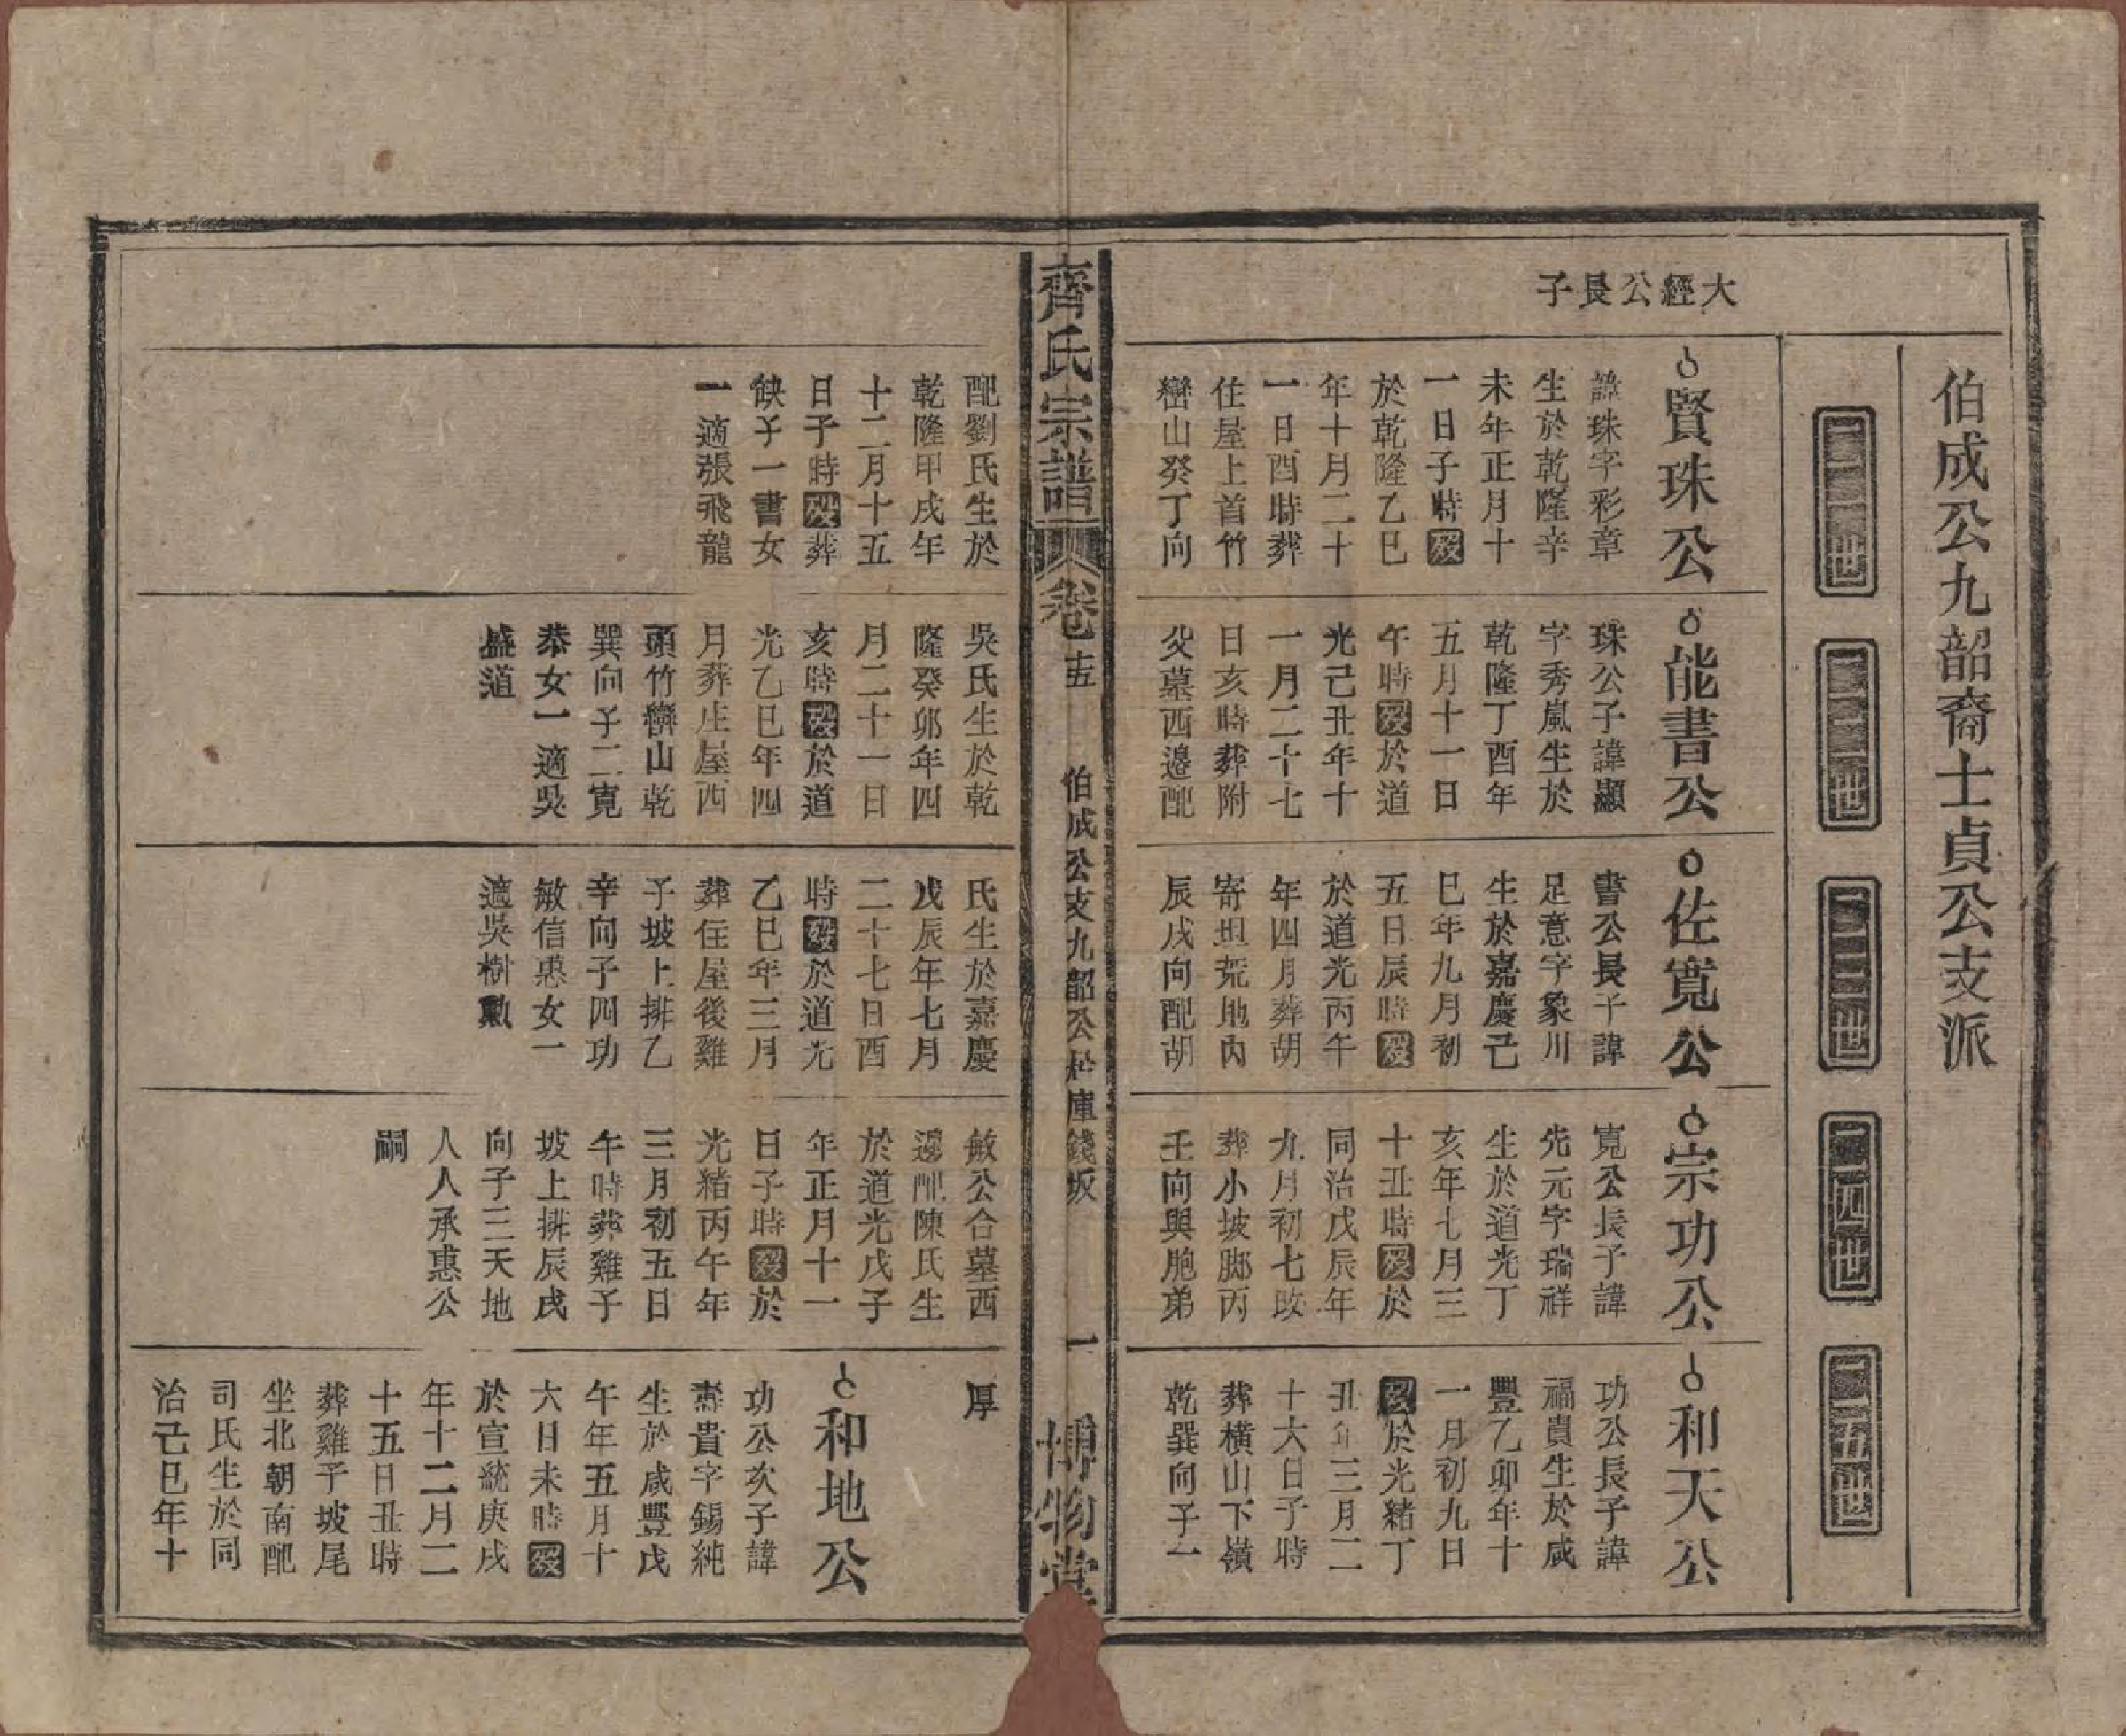 伯成公九韶裔士貞公支派
二一世
二二世
二三世
二四世
二五世
大經公長子
賢珠公
諱珠字彩章
生於乾隆辛
未年正月十
一日子時歿
於乾隆乙巳
年十月二十
一日酉時葬
住屋上首竹
巒山癸丁向
能書公
珠公子諱顯
字秀嵐生於
乾隆丁酉年
五月十一日
午時歿於道
光己丑年十
一月二十七
日亥時葬附
父墓西邉配
佐寬公
書公長子諱
足意字象川
生於嘉慶己
巳年九月初
五日辰時歿
於道光丙午
年四月葬胡
寄坦荒地內
辰戌向配胡
宗功公
寬公長子諱
先元字瑞祥
生於道光丁
亥年七月三
十丑時歿於
同治戊辰年
九月初七改
葬小坡脚丙
壬向與胞弟
和天公
功公長子諱
福貴生於咸
豐乙卯年十
一月初九日
歿於光緒丁
丑年三月二
十六日子時
葬橫山下嶺
乾巽向子一
齊氏宗譜
卷十五
伯成公支九韶公居庫錢坂
一
博物堂
配劉氏生於
乾隆甲戌年
十二月十五
日子時歿葬
缺子一書女
一適張飛龍
吳氏生於乾
隆癸卯年四
月二十一日
亥時歿於道
光乙巳年四
月葬庄屋西
頭竹巒山乾
巽向子二寬
恭女一適吳
盛道
氏生於嘉慶
戊辰年七月
二十七日酉
時歿於道光
乙巳年三月
葬住屋後雞
子坡上排乙
辛向子四功
敏信惠女一
適吳樹勳
敏公合墓西
邉配陳氏生
於道光戊子
年正月十一
日子時歿於
光緒丙午年
三月初五日
午時葬雞子
坡上排辰戌
向子三天地
人人承惠公
嗣
厚
和地公
功公次子諱
壽貴字錫純
生於咸豐戊
午年五月十
六日未時歿
於宣統庚戌
年十二月二
十五日丑時
葬雞子坡尾
坐北朝南配
司氏生於同
治己巳年十